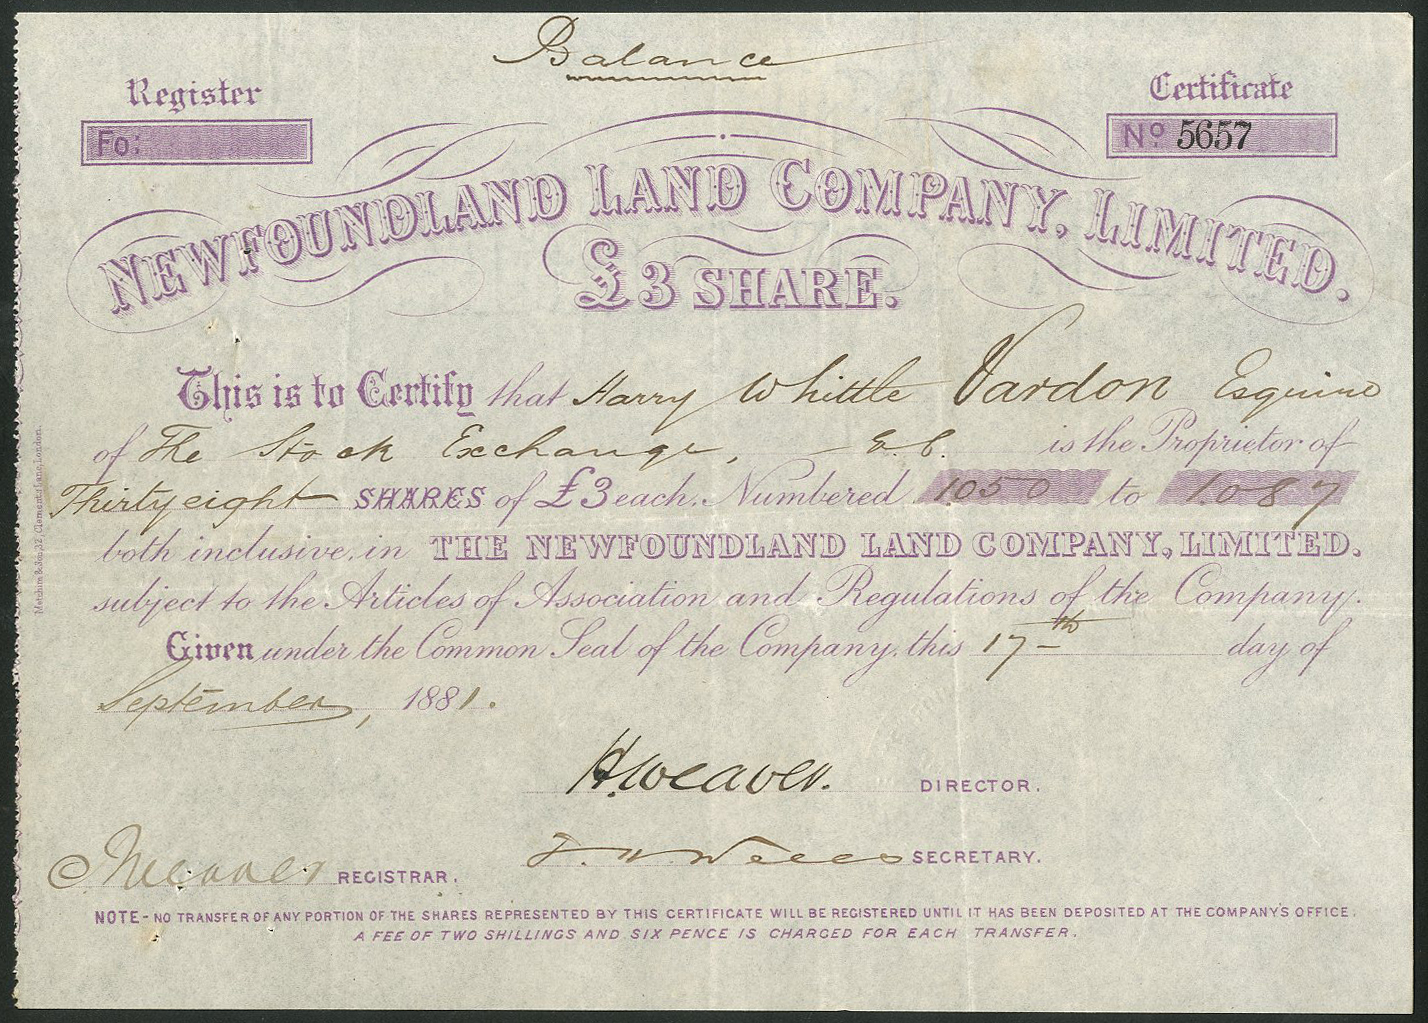 Balance
Register
Certificate
Fo:
No 5657
NEWFOUNDLAND LAND COMPANY, LIMITED.
£3 SHARE.
This is to Certify that Harry Whittle Vardon Esquire
of The Stock Exchange, E.C. is the Proprietor of
Thirty eight SHARES of £3 each. Numbered 1050 to 1087
both inclusive, in THE NEWFOUNDLAND LAND COMPANY, LIMITED.
subject to the Articles of Association and Regulations of the Company.
Given under the Common Seal of the Company, this 17th day of
September, 1881.
H. Weaver. DIRECTOR.
SECRETARY.
REGISTRAR.
NOTE - NO TRANSFER OF ANY PORTION OF THE SHARES REPRESENTED BY THIS CERTIFICATE WILL BE REGISTERED UNTIL IT HAS BEEN DEPOSITED AT THE COMPANY'S OFFICE.
A FEE OF TWO SHILLINGS AND SIX PENCE IS CHARGED FOR EACH TRANSFER.
32, Clements Lane, London.